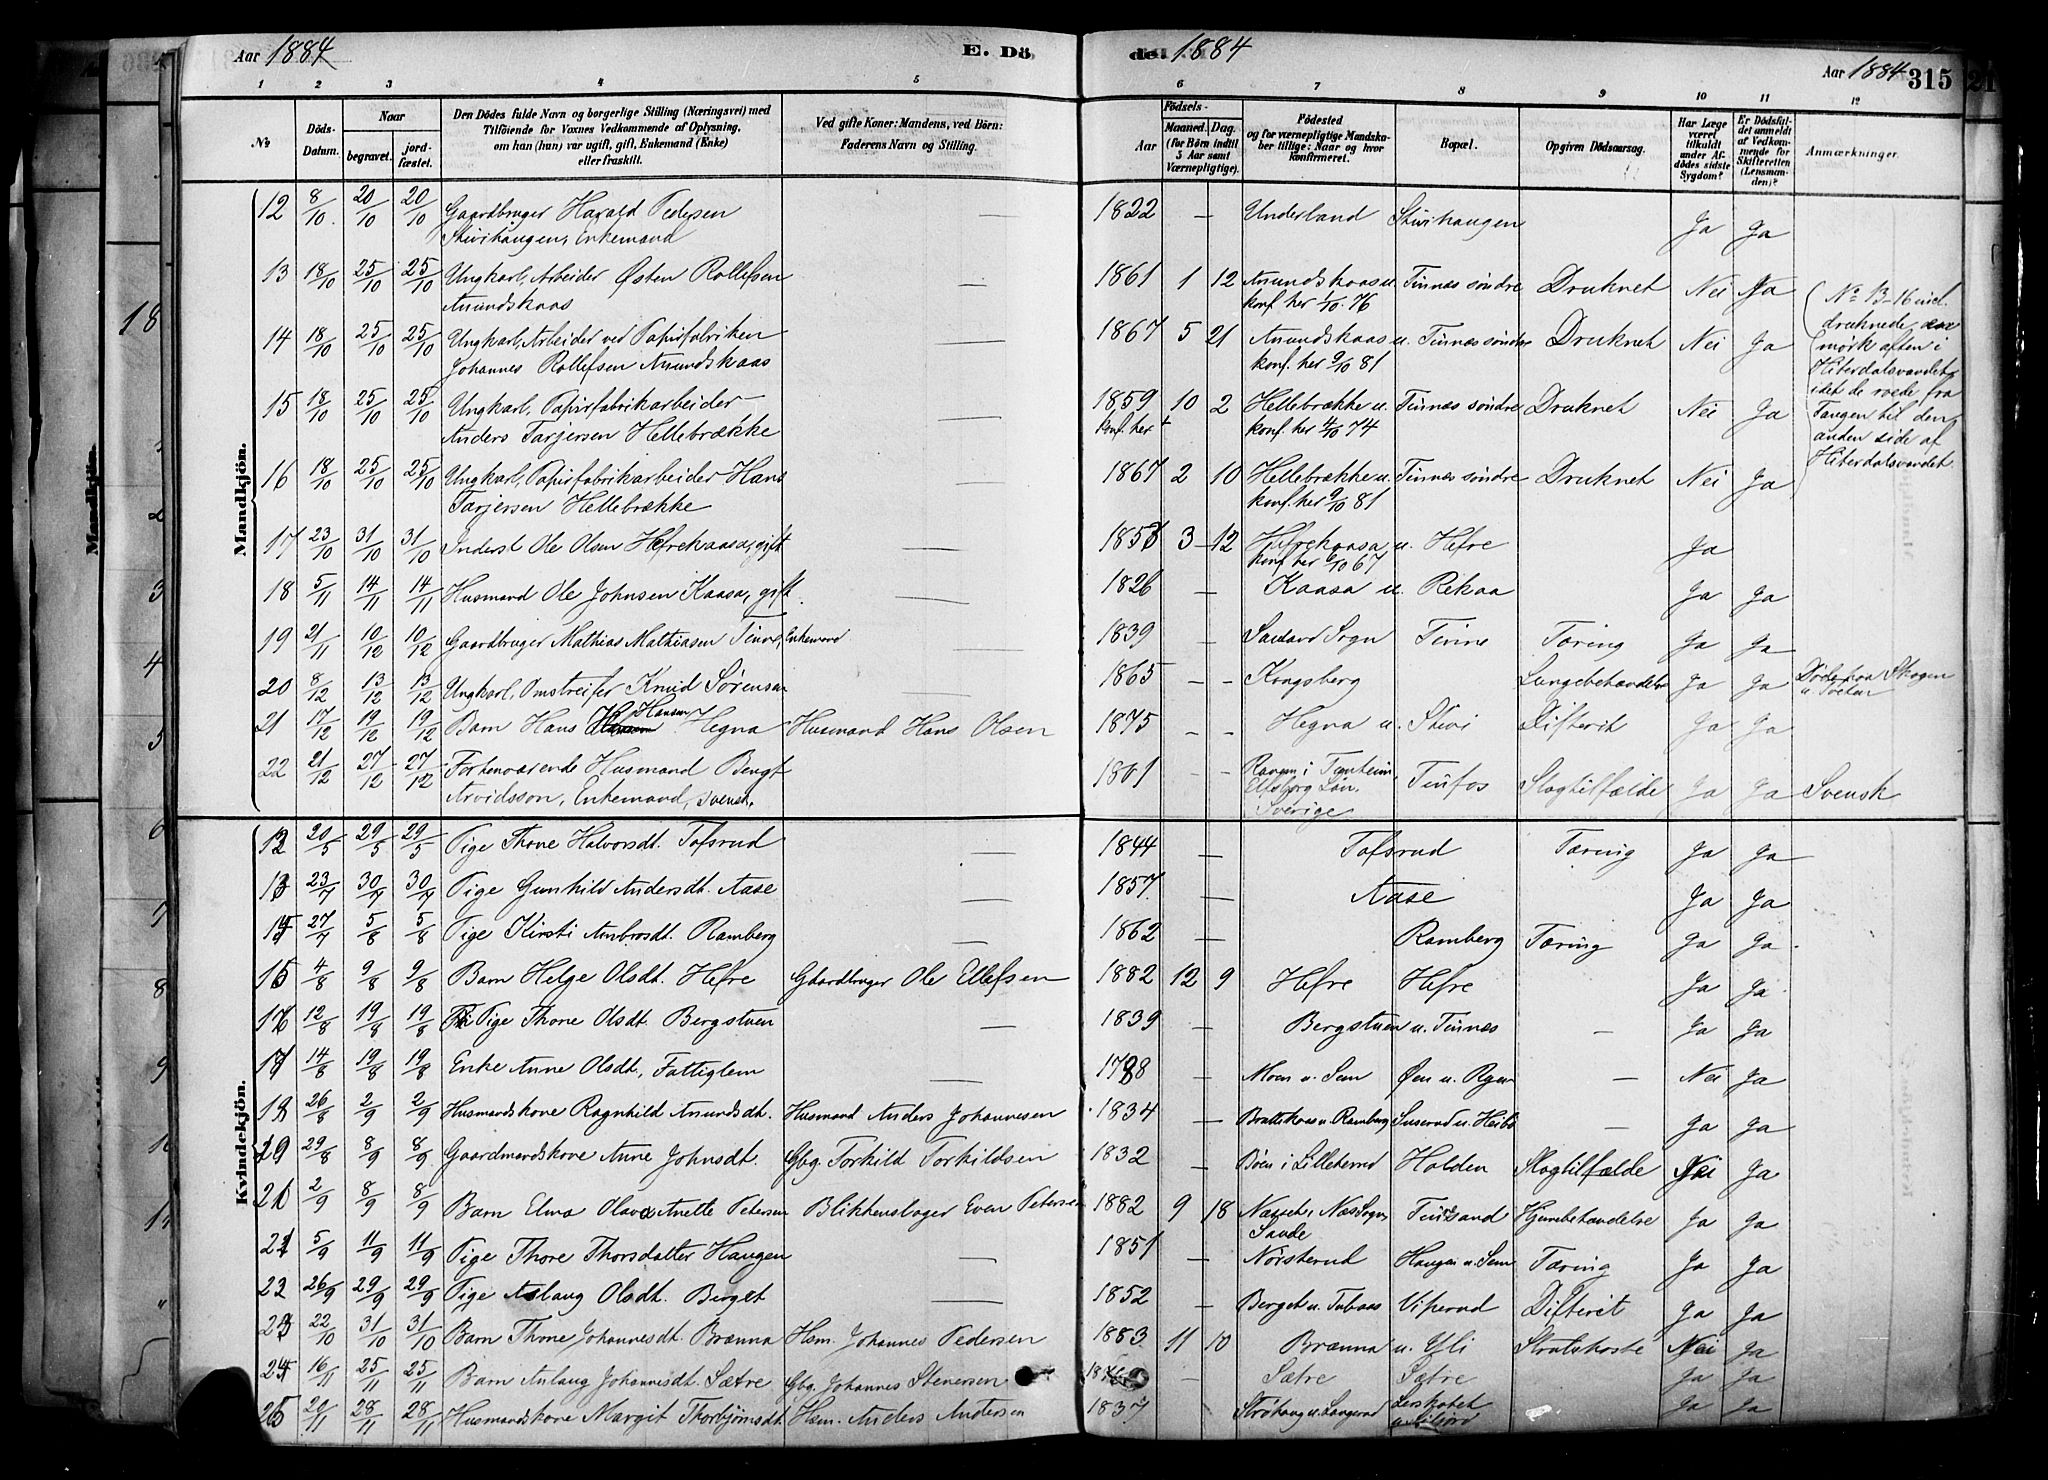 Aar 1884 E. Dö de. 1884 Aar 1884 315
1 2 3 4 5 6 7 8 9 10 11 12
No Döds-Datum. Naar begravet. jord-fæstet. Den Dödes fulde Navn og borgerlige Stilling (Næringsvei) med Tilföiende for Voxnes Vedkommende af Oplysning, om han (hun) var ugift, gift, Enkemand (Enke) eller fraskilt. Ved gifte Koner: Mandens, ved Börn: Faderens Navn og Stilling. Födsels- Aar Maaned. Dag. (for Börn indtil 5 Aar samt Værnepligtige). Födested og for værnepligtige Mandska-ber tillige: Naar og hvor konfirmeret. Bopæl. Opgiven Dödsaarsag. Har Læge været tilkaldt under Af-dödes sidste Sygdom? Er Dödsfal-det anmeldt af Vedkom-mende for Skifteretten (Lensman-den)? Anmærkninger.
Mandkjön.
12 8/10 20/10 20/10 Gaardbruger Harald Pedersen — 1822 — Underland Stivihaugen Ja Ja
Stivihaugen, Enkemand
13 18/10 25/10 25/10 Ungkarl, Arbeider Østen Rollefsen — 1861 1 12 Amundskaas u. Tinnes søndre Druknet Nei Ja No 13-16 incl.
Amundskaas konf. her 1/10 76 druknede en
14 18/10 25/10 25/10 Ungkarl, Arbeider ved Papirfabriken — 1867 5 21 Amundskaas u. Tinnes søndre Druknet Nei Ja mørk aften i
Johannes Rollefsen Amundskaas konf. her 9/10 81 Hiterdalsvandet
15 18/10 25/10 25/10 Ungkarl, Papirfabrikarbeider — 1859 10 2 Hellebrække u. Tinnes søndre Druknet Nei Ja idet de roede fra
Anders Tarjersen Hellebrække konf. her konf. her 4/10 74 Tangen til den
16 18/10 25/10 25/10 Ungkarl, Papirfabrikarbeider Hans — 1867 2 10 Hellebrække u. Tinnes søndre Druknet Nei Ja anden side af
Tarjersen Hellebrække konf. her 9/10 81 Hiterdalsvandet
17 23/10 31/10 31/10 Inderst Ole Olsen Hefrekaasa, gift — 3 12 Hefrekaasa u. Hefre Ja
konf her 6/10 67
18 5/11 14/11 14/11 Husmand Ole Johnsen Kaasa, gift. — 1826 Kaasa u. Rekaa Ja Ja
19 21/11 10/12 10/12 Gaardbruger Mathias Mathiasen Tinne, Enkemand 1839 — Sauland Sogn Tinne Tæring Ja Ja
20 8/12 13/12 13/12 Ungkarl, Omstreifer Knud Sørensen — 1865 — — Kongsberg Lungebetændelse Ja Ja Døde paa Skogen
21 17/12 19/12 19/12 Barn Hans Hansen Hegna Husmand Hans Olsen 1875 — — Hegna u. Stivi Difterit Ja Ja
22 21/12 27/12 27/12 Forhenværende Husmand Bengt 1801 — — Tinfos Slagtilfælde Ja Ja Svensk
Arvidsson, Enkemand, svensk. Elfsborg Län. i Sverige
Kvindekjön.
12 20/5 29/5 29/5 Pige Thone Halvorsdt. Tofsrud — 1844 — Tofsrud Tæring Ja Ja
13 23/7 30/7 30/7 Pige Gunhild Andersdt. Aase — 1857 — Aase Ja Ja
27/7 5/8 5/8 Pige Kirsti Ambrosdt. Ramberg — 1862 — Ramberg Tæring Ja Ja
4/8 9/8 9/8 Barn Helge Olsdt. Hefre Gaardbruger Ole Ellefsen 1882 12 9 Hefre Hefre Ja Ja
12/8 19/8 19/8 Pige Thone Olsdt. Bergstuen — 1839 — Bergstuen u. Tinnes — Ja Ja
14/8 19/8 19/8 Enke Anne Olsdt, Fattiglem — 1798 — Moen u. Sem Øen u. Ryen — Nei Ja
26/8 2/9 2/9 Husmandskone Ragnhild Amundsdt. Husmand Anders Johannesen 1834 — Brattekaas u. Ramberg Suserud u. Heibø — Ja Ja
29/8 8/9 8/9 Gaardmandskone Anne Johnsdt. Gbg. Torkild Torkildsen 1832 — Bøen i Lilleherred Holden Slagtilfælde Nei Ja
21 2/9 8/9 8/9 Barn Elma Olava Anette Petersen Blikkenslager Even Petersen 1882 9 18 Næsset, Næs Sogn, Tinnesand Hjernebetændelse Ja Ja
Saude
5/9 11/9 11/9 Pige Thore Thorsdatter Haugen — 1851 — Nørsterud Haugen u. Sem Tæring Ja Ja
23 26/9 29/9 29/9 Pige Aslaug Olsdt. Berget — 1852 — Berget u. Tubaas Viperud Difterit Ja Ja
22/10 31/10 31/10 Barn Thone Johannesdt. Brænna Hsm. Johannes Pedersen 1883 11 10 Brænna u. Yli Strubehoste Nei Ja
16/11 25/11 25/11 Barn Aslaug Johannesdt. Sætre Gbg. Johannes Stenersen — Sætre Sætre Ja Ja
20/11 28/11 28/11 Husmandskone Margit Thorbjørnsdt. Hsm. Anders Andersen 1837 — Ja Ja